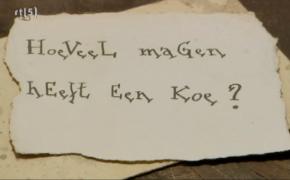 rtl5
HOEVEEL mAGEN
hEEft EEN KOE?